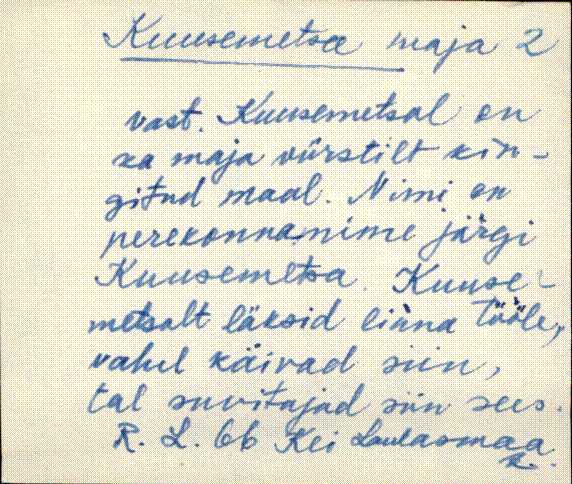 Kuusemetsa maja 2
vast. Kuusemetsal on
ka maja vürstilt kin-
gitud maal. Nimi on
perekonnanime järgi
Kuusemetsa. Kuuse-
metsalt läksid linna tööle,
vahel käivad siin,
tal suvitajad siin sees.
R. L. 66 Kei Laulasmaa
k.